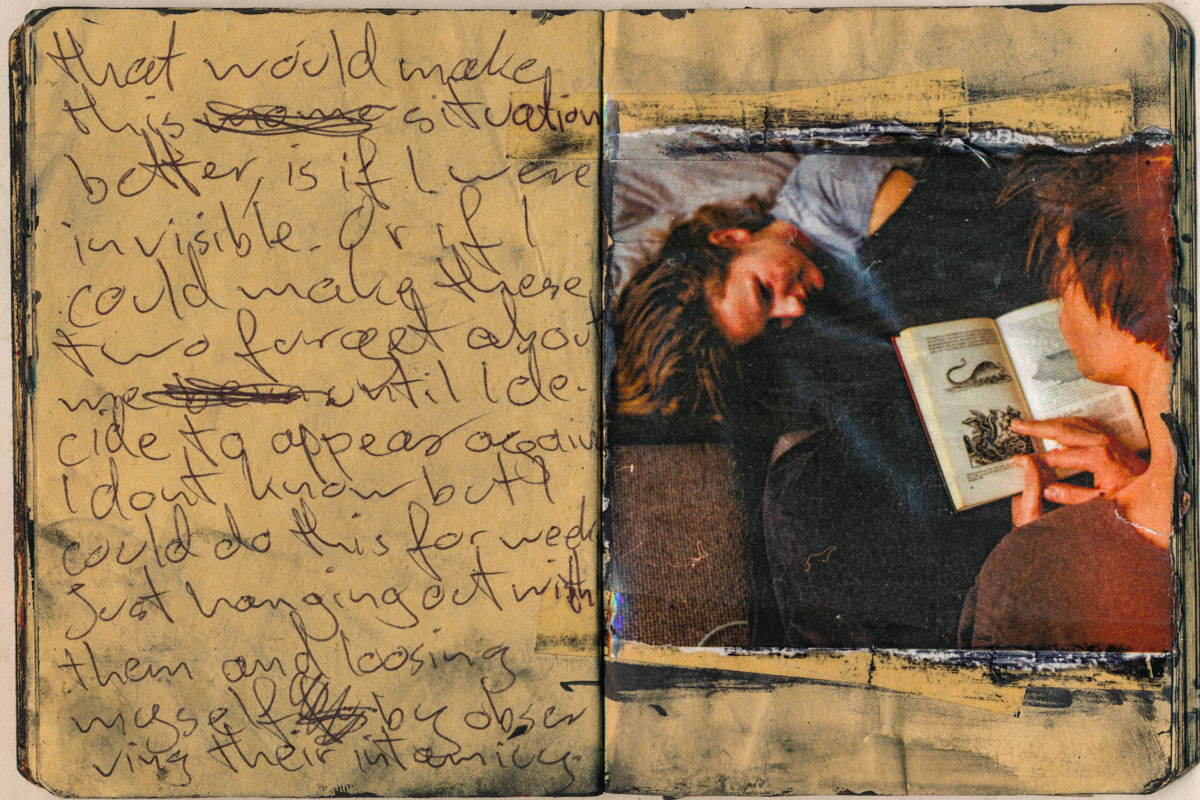 that would make
this situation
better, is if I were
invisible. Or if I
could make these
two forget about
me until I de-
cide to appear again
I dont know but I
could do this for week
Just hanging out with
them and loosing
myself by obser
ving their intamicy.